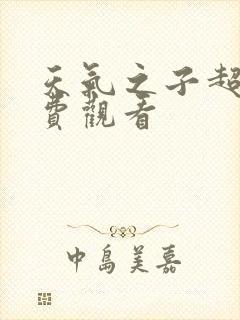 天氣之子超
費觀看
中島美嘉